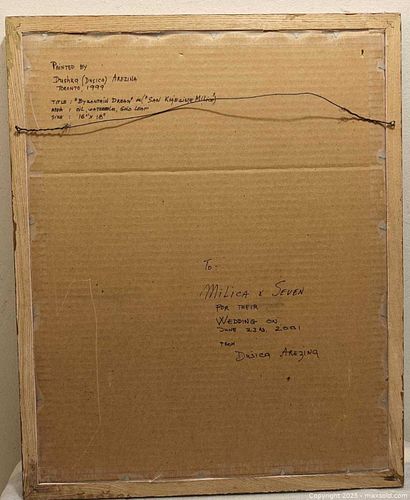 PAINTED BY
DUSHKA (DUSICA) AREZINA
TORONTO, 1999
TITLE : "BYZANTAIN DREAM" or ("SAN KNEGINJE MILICE")
MEDIA : OIL, WATERCOLOR, GOLD LEAF
SIZE : 16" x 18"
TO:
MILICA & SEVEN
FOR THEIR
WEDDING ON
JUNE 23rd, 2001
FROM
DUSICA AREZINA
Copyright 2025 - maxsold.com